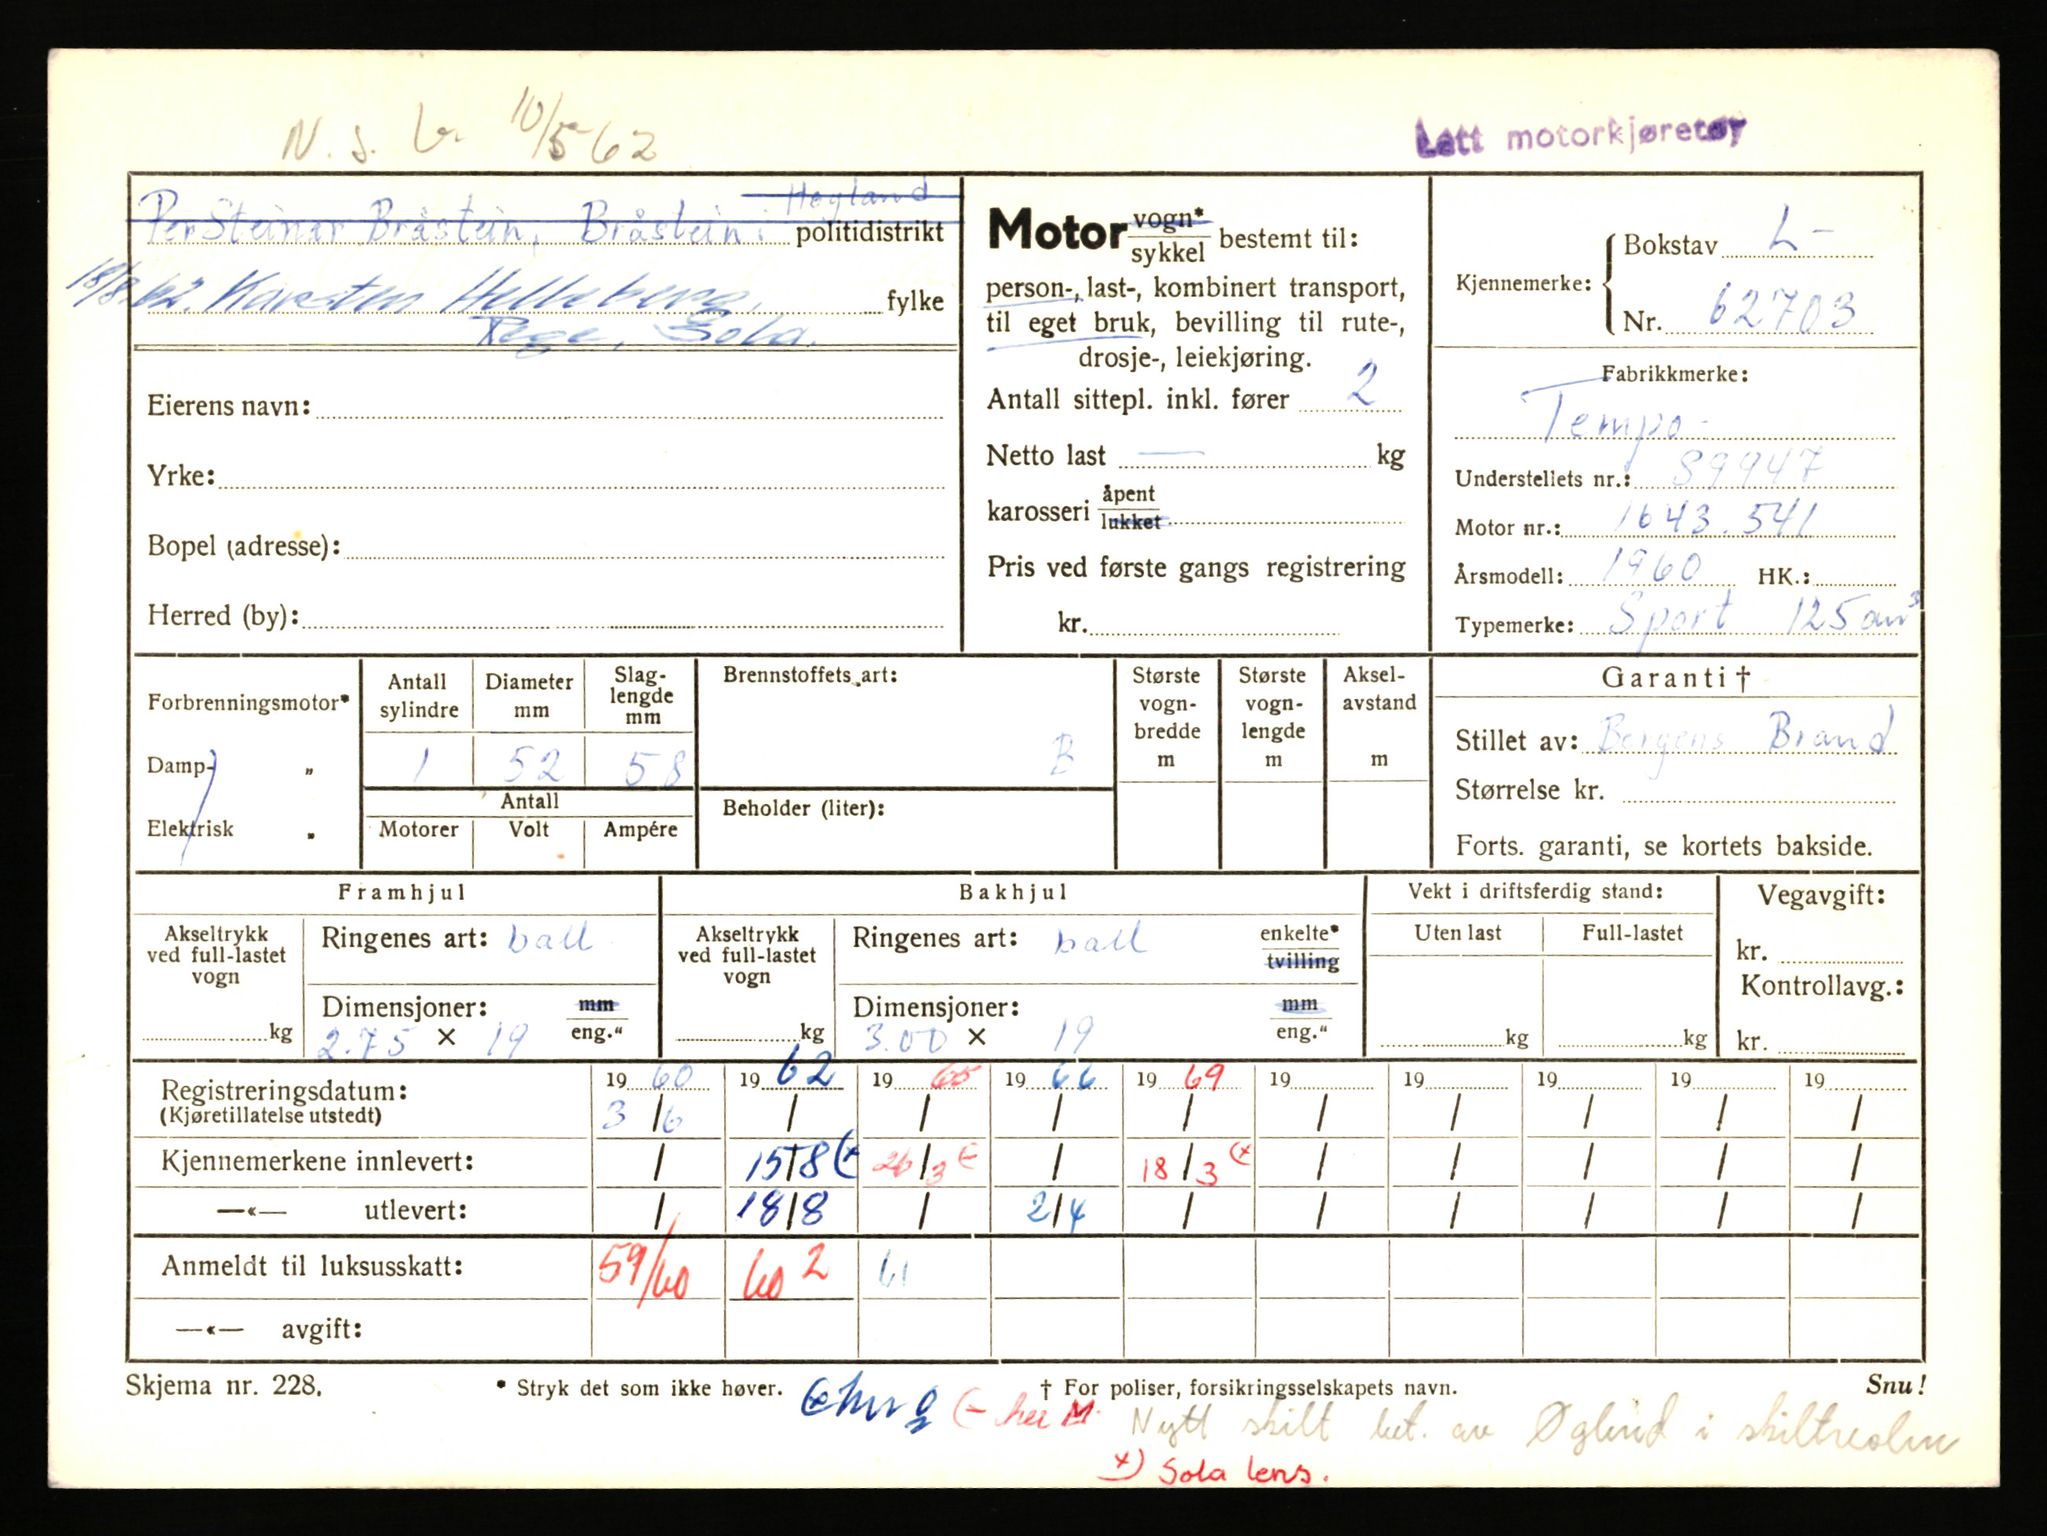 N. S. 10/5-62
Lett motorkjøretøy
Høgland
Per Steinar Bråstein, Bråstein i politidistrikt
18/8.62. Karsten Helleberg, fylke
Tege, Sola.
Eierens navn:
Yrke:
Bopel (adresse):
Herred (by):
Motor vogn* / sykkel bestemt til:
person-, last-, kombinert transport,
til eget bruk, bevilling til rute-,
drosje-, leiekjøring.
Antall sittepl. inkl. fører 2
Netto last — kg
karosseri åpent / lukket
Pris ved første gangs registrering
kr.
Kjennemerke: Bokstav L-
Nr. 62703
Fabrikkmerke:
Tempo-
Understellets nr.: 89947
Motor nr.: 1643.541
Årsmodell: 1960 HK.:
Typemerke: Sport 125 cm³
Forbrenningsmotor*
Damp- „
Elektrisk „
Antall sylindre Diameter mm Slaglengde mm
1 52 58
Antall
Motorer Volt Ampére
Brennstoffets art:
B
Beholder (liter):
Største vogn-bredde m
Største vogn-lengde m
Aksel-avstand m
Garanti †
Stillet av: Bergens Brand
Størrelse kr.
Forts. garanti, se kortets bakside.
Framhjul
Akseltrykk ved full-lastet vogn kg
Ringenes art: ball
Dimensjoner: mm / eng."
2.75 × 19
Bakhjul
Akseltrykk ved full-lastet vogn kg
Ringenes art: ball enkelte* / tvilling
Dimensjoner: mm / eng."
3.00 × 19
Vekt i driftsferdig stand:
Uten last Full-lastet
kg kg
Vegavgift:
kr.
Kontrollavg.:
kr.
Registreringsdatum: 19 60 19 62 19 65 19 66 19 69 19 19 19 19 19
(Kjøretillatelse utstedt) 3/6 / / / / / / / / /
Kjennemerkene innlevert: / 15/8 (x 26/3 (- / 18/3 (x / / / / /
—«— utlevert: / 18/8 / 2/4 / / / / / /
Anmeldt til luksusskatt: 59/60 60 2 61
—«— avgift:
Skjema nr. 228.
* Stryk det som ikke høver.
† For poliser, forsikringsselskapets navn.
Snu!
(- her M. Nytt skilt av Øglend i skiltreolen
x) Sola lens.